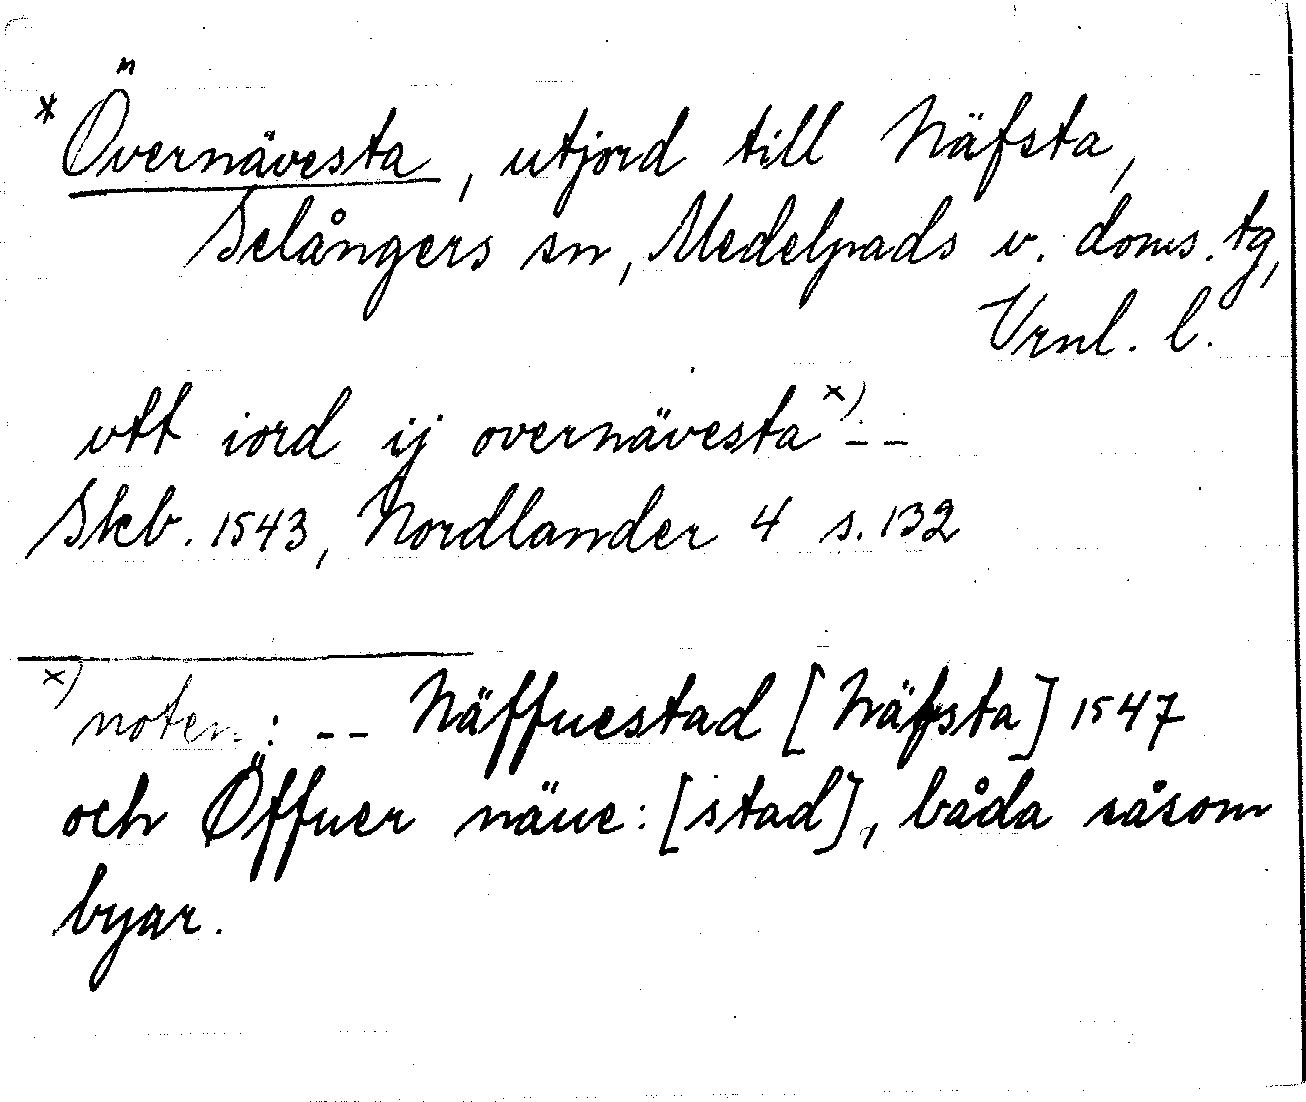 * Övernävesta, utjord till Näfsta,
Selångers sn, Medelpads v. doms. tg,
Vrnl. l.
vtt iord ij overnävesta x) --
Skb. 1543, Nordlander 4 s. 132
x) noten: -- Näffuestad [Näfsta] 1547
och Öffuer näue: [stad], båda såsom
byar.